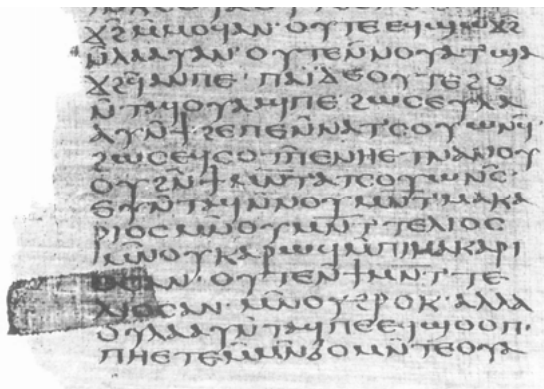 ϫϩⲙ̄ⲙⲟϥ ⲁⲛ· ⲟⲩⲧⲉ ⲉϥϣⲱϫϩ
ⲛ̄ⲗⲁⲁⲩ ⲁⲛ· ⲟⲩⲧⲉ ⲛ̄ⲛⲟⲩⲁⲧϣⲁ
ϫϩϥ ⲁⲛ ⲡⲉ· ⲡⲁⲓ̈ ⲇⲉ ⲟⲩⲧⲉϩⲟ
ⲛ̄ⲧⲁϥ ⲟⲩⲁϥ ⲡⲉ· ϩⲱⲥ ⲉⲩⲗⲁ
ⲁⲩ ⲛ̄ϯ·ϩⲉ ⲡⲉ ⲛ̄ⲛⲁⲧⲥⲟⲩⲱⲛϥ̄·
ϩⲱⲥ ⲉϥⲥⲟⲧⲡ̄ ⲉⲛⲏⲉⲧⲛⲁⲛⲟⲩ
ⲟⲩ ϩⲛ̄ ϯⲙⲛ̄ⲧⲁⲧⲥⲟⲩⲱⲛⲥ̄·
ⲉⲩⲛ̄ⲧⲁϥ ⲛ̄ⲛⲟⲩⲙⲛ̄ⲧ·ⲙⲁⲕⲁ
ⲣⲓⲟⲥ ⲙⲛ̄ ⲟⲩⲙⲛ̄ⲧ·ⲧⲉⲗⲓⲟⲥ
ⲙⲛ̄ ⲟⲩⲕⲁⲣⲱϥ ⲙ̄ⲡⲓⲙⲁⲕⲁⲣⲓ
ⲁⲛ· ⲟⲩⲧⲉ ⲛ̄ϯⲙⲛ̄ⲧ·ⲧⲉ
ⲗⲓⲟⲥ ⲁⲛ· ⲙⲛ̄ ⲟⲩϩⲣⲟⲕ· ⲁⲗⲗⲁ
ⲟⲩⲗⲁⲁⲩ ⲛ̄ⲧⲁϥ ⲡⲉ ⲉϥϣⲟⲟⲡ·
ⲡⲏ ⲉⲧⲉⲙⲙⲛ̄ϭⲟⲙ ⲛ̄ⲧⲉ ⲟⲩⲁ